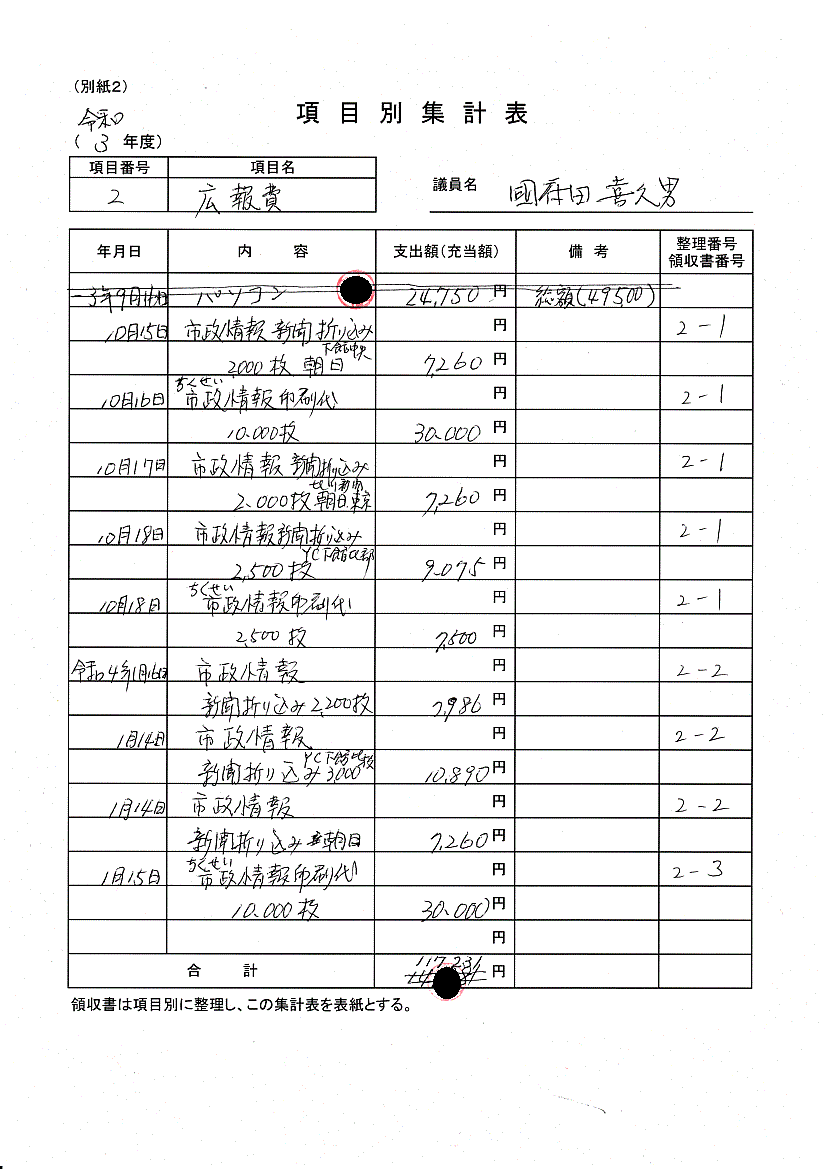 （別紙２）
項目別集計表
令和
（３年度）
項目番号 項目名
2 広報費
議員名 國府田喜久男
年月日 内容 支出額（充当額） 備考 整理番号 領収書番号
パソコン 24,750円 総額(49,500)
10月15日 市政情報 新聞折り込み 円 2-1
下館中央
2,000枚 朝日 7,260円
ちくせい
10月16日 市政情報印刷代 円 2-1
10,000枚 30,000円
10月17日 市政情報 新聞折り込み 円 2-1
2,000枚 朝日,東京 7,260円
10月18日 市政情報新聞折り込み 円 2-1
YC下館北部
2,500枚 9,075円
ちくせい
10月18日 市政情報印刷代 円 2-1
2,500枚 7,500円
令和4年1月16日 市政情報 円 2-2
新聞折り込み2,200枚 7,986円
1月14日 市政情報 円 2-2
YC下館北
新聞折り込み3,000 10,890円
1月14日 市政情報 円 2-2
新聞折り込み 朝日 7,260円
ちくせい
1月15日 市政情報印刷代 円 2-3
10,000枚 30,000円
円
合計 117,231円
領収書は項目別に整理し、この集計表を表紙とする。